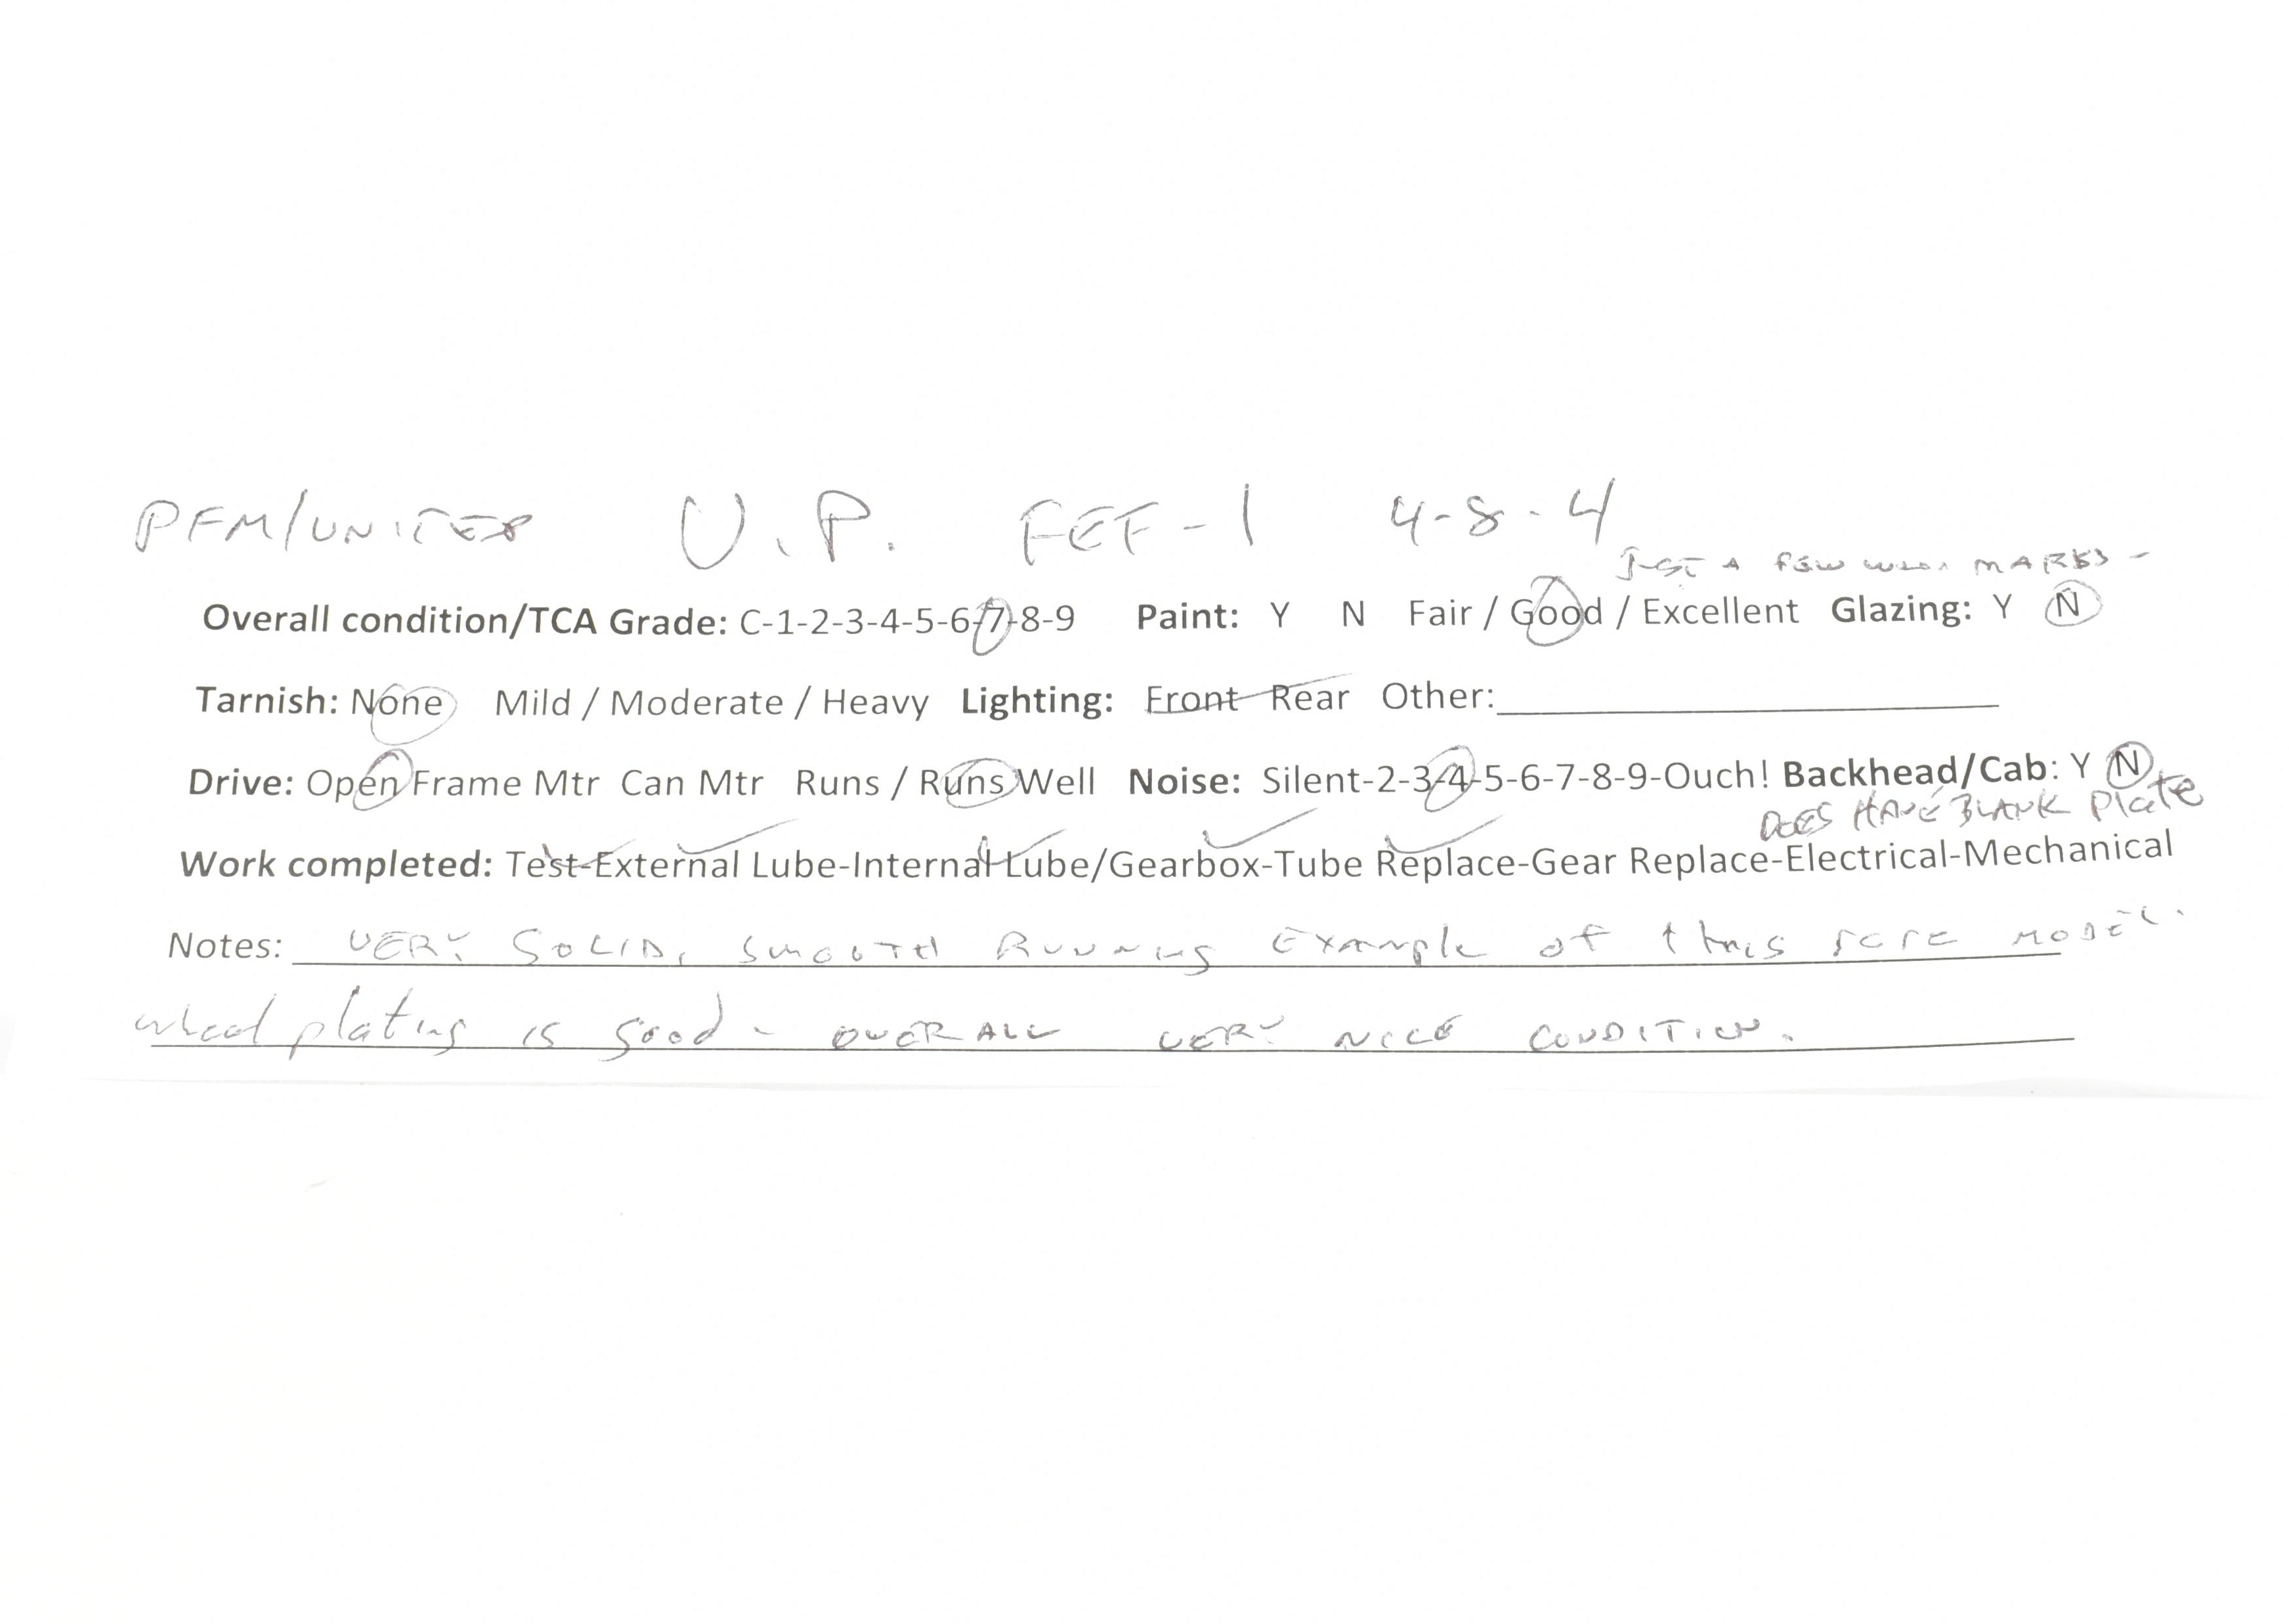 PFM/UNITED U.P. FEF-1 4-8-4
JUST A FEW WEAR MARKS -
Overall condition/TCA Grade: C-1-2-3-4-5-6-7-8-9 Paint: Y N Fair / Good / Excellent Glazing: Y N
Tarnish: None Mild / Moderate / Heavy Lighting: Front Rear Other:
Drive: Open Frame Mtr Can Mtr Runs / Runs Well Noise: Silent-2-3-4-5-6-7-8-9-Ouch! Backhead/Cab: Y N
DOES HAVE BLANK Plate
Work completed: Test-External Lube-Internal Lube/Gearbox-Tube Replace-Gear Replace-Electrical-Mechanical
Notes: VERY SOLID, SMOOTH RUNNING EXAMPLE of this rare MODEL.
wheel plating is good - OVERALL VERY NICE CONDITION.